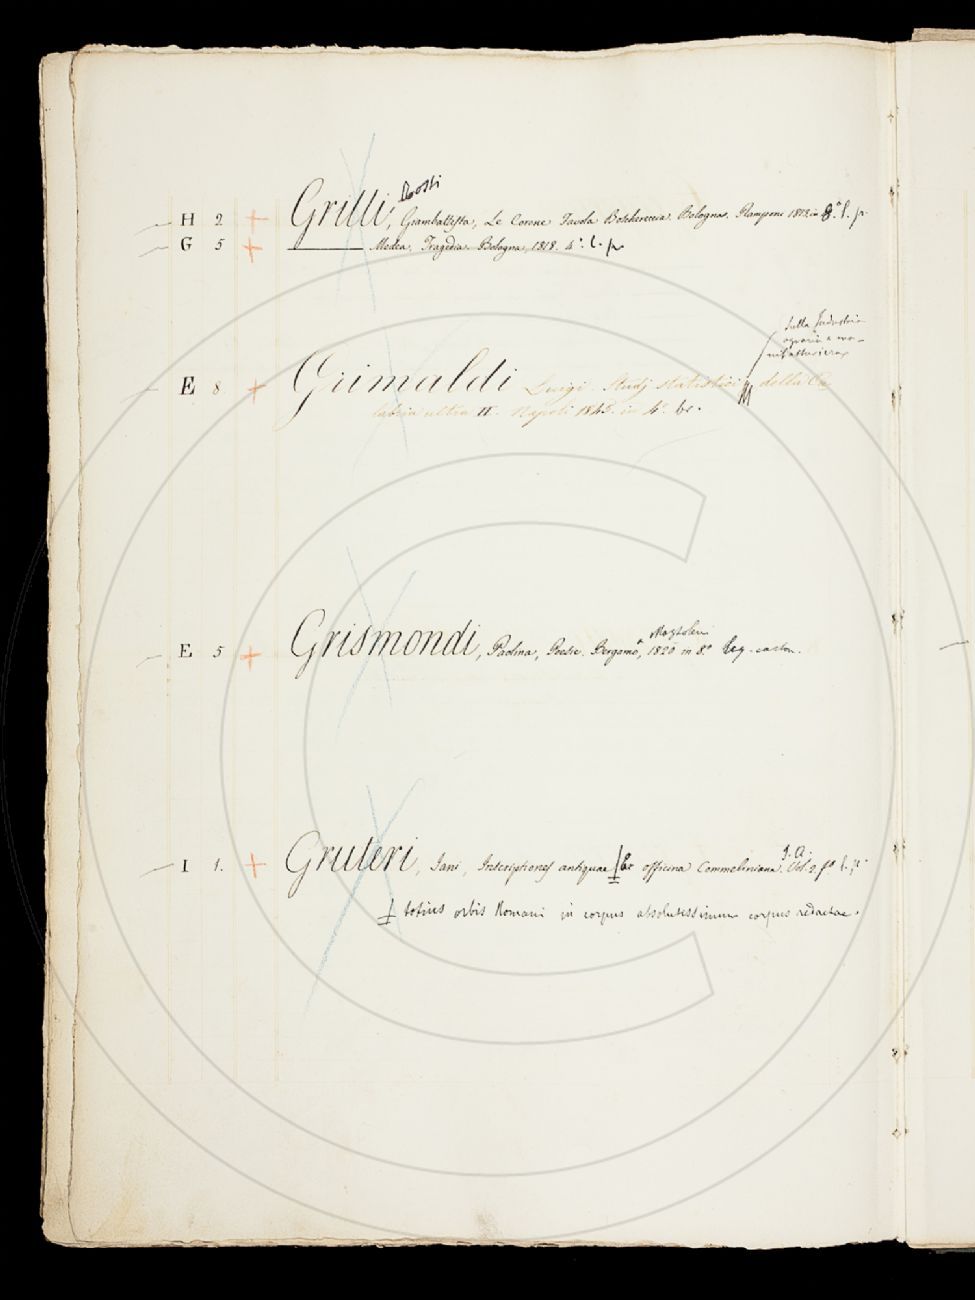 Rosti
H 2 + Grilli, Giambattista, Le Corone Favola Boschereccia. Bologna. Ramponi 1812 in 8.° l. p.
G 5 + ——— Medea. Tragedia. Bologna, 1818. 4.° l. p.
sulla Industria
agraria e ma-
nifatturiera
E 8. + Grimaldi Luigi. Studj statistici della Ca
labria ultra II.ª Napoli 1845. in 4.°
Mazzoleni
E 5 + Grismondi, Paolina, Poesie. Bergamo, 1820 in 8.° leg. carton.
J. A.
I 1. + Gruteri, Jani, Inscriptiones antiquae Ex officina Commeliniana. Vol. 2 f.° l. p.
totius orbis Romani in corpus absolutissimum corpus redactae.